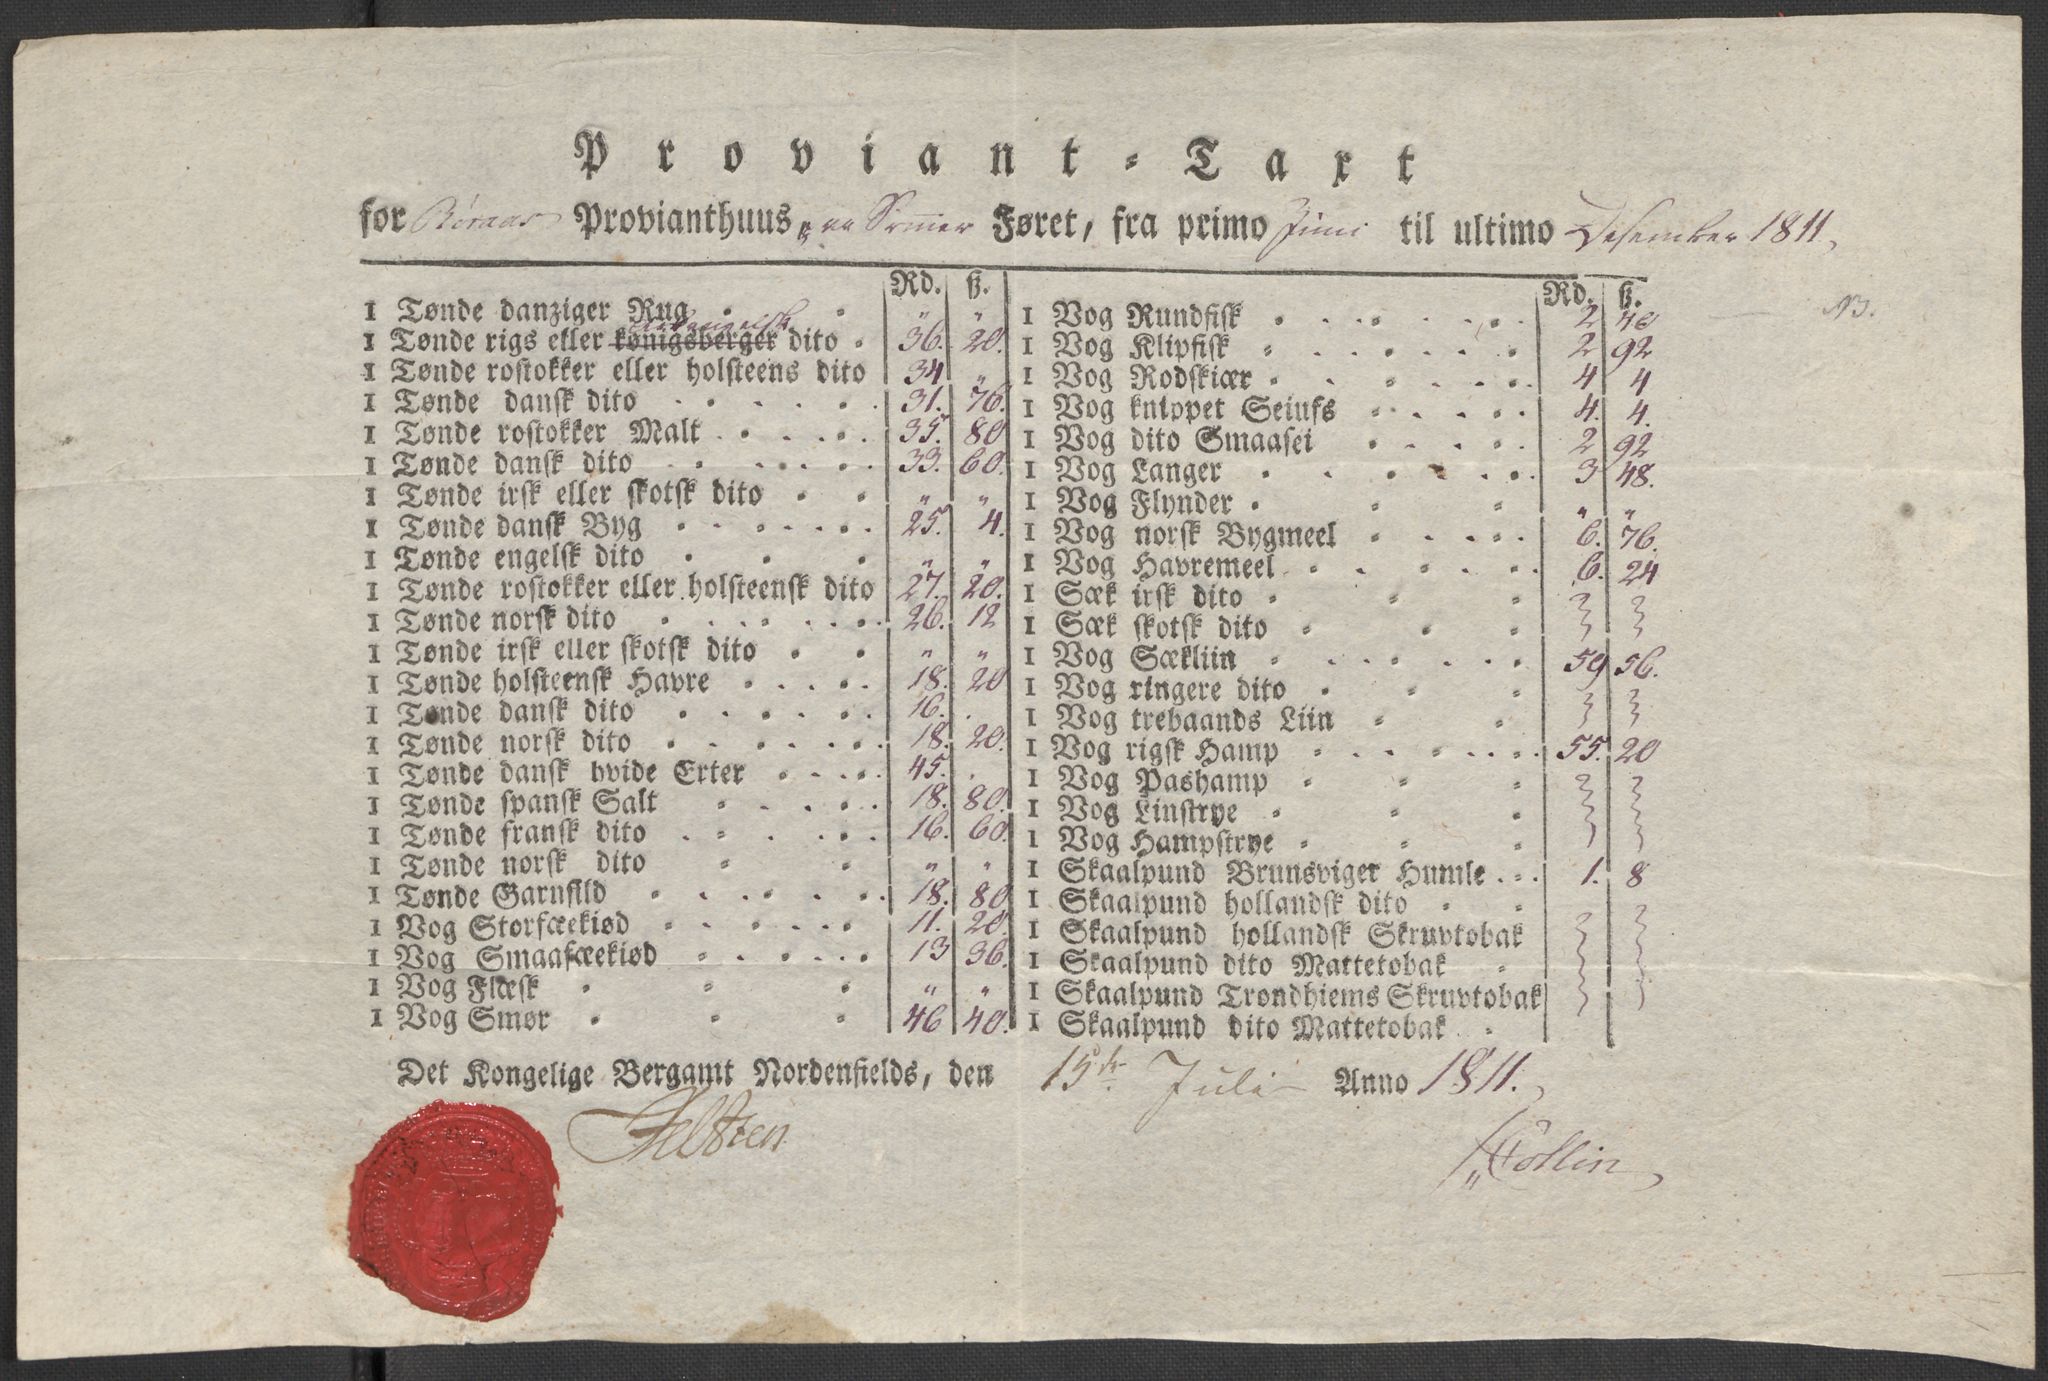 Proviant-Taxt
for Røraas Provianthuus paa Sommer Føret, fra primo Juni til ultimo Desember 1811,
Rd. ß.
1 Tønde danziger Rug " "
1 Tønde rigs eller kønigsberger dito 36. 20.
1 Tønde rostokker eller holsteens dito 34 "
1 Tønde dansk dito 31. 76.
1 Tønde rostokker Malt 35. 80
1 Tønde dansk dito 33. 60.
1 Tønde irsk eller skotsk dito " "
1 Tønde dansk Byg 25. 4.
1 Tønde engelsk dito " "
1 Tønde rostokker eller holsteensk dito 27. 20.
1 Tønde norsk dito 26. 12
1 Tønde irsk eller skotsk dito " "
1 Tønde holsteensk Havre 18. 20
1 Tønde dansk dito 16. .
1 Tønde norsk dito 18. 20.
1 Tønde dansk hvide Erter 45. .
1 Tønde spansk Salt 18. 80.
1 Tønde fransk dito 16. 60.
1 Tønde norsk dito " "
1 Tønde Garnsild 18. 80
1 Vog Storfæekiød 11. 20.
1 Vog Smaafæekiød 13 36.
1 Vog Flæsk " "
1 Vog Smør 46 40.
Rd. ß.
1 Vog Rundfisk 2 40
1 Vog Klipfisk 2 92
1 Vog Rodskiær 4 4
1 Vog knippet Seiufs 4. 4.
1 Vog dito Smaasei 2 92
1 Vog Langer 3 48.
1 Vog Flynder " "
1 Vog norsk Bygmeel 6. 76.
1 Vog Havremeel 6. 24
1 Sæk irsk dito
1 Sæk skotsk dito
1 Vog Sækliin 59 56.
1 Vog ringere dito
1 Vog trebaands Liin
1 Vog rigsk Hamp 55. 20
1 Vog Pashamp
1 Vog Linstrye
1 Vog Hampstrye
1 Skaalpund Brunsviger Humle 1. 8
1 Skaalpund hollandsk dito
1 Skaalpund hollandsk Skruvtobak
1 Skaalpund dito Mattetobak
1 Skaalpund Trondhiems Skruvtobak
1 Skaalpund dito Mattetobak
Det Kongelige Bergamt Nordenfields, den 15de Juli Anno 1811.
Collin